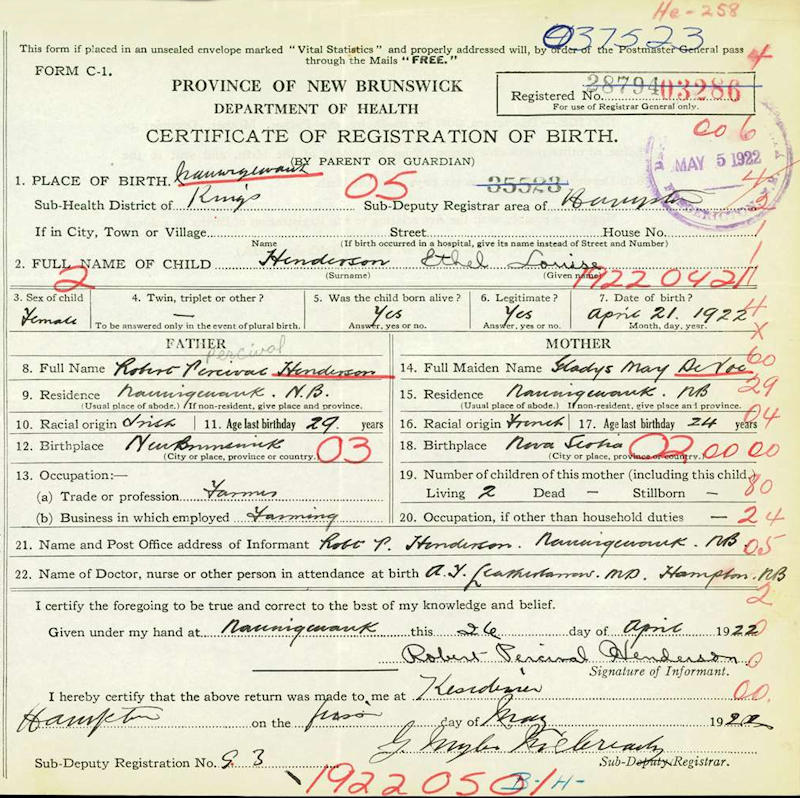 He-258
037523
This form if placed in an unsealed envelope marked "Vital Statistics" and properly addressed will, by order of the Postmaster General pass
through the Mails "FREE."
FORM C-1.
PROVINCE OF NEW BRUNSWICK
DEPARTMENT OF HEALTH
28794 03286
Registered No.
For use of Registrar General only.
CERTIFICATE OF REGISTRATION OF BIRTH.
006
(BY PARENT OR GUARDIAN)
MAY 5 1922
FREDERICTON, N.B.
1. PLACE OF BIRTH. Nauwigewauk 05 35523
Sub-Health District of Kings Sub-Deputy Registrar area of Hampton
If in City, Town or Village Street House No.
Name (If birth occurred in a hospital, give its name instead of Street and Number)
2. FULL NAME OF CHILD Henderson Ethel Louise
(Surname) (Given name)
2 19220421
3. Sex of child 4. Twin, triplet or other? 5. Was the child born alive? 6. Legitimate? 7. Date of birth?
Female — Yes Yes April 21. 1922
To be answered only in the event of plural birth. Answer, yes or no. Answer, yes or no. Month, day, year.
FATHER MOTHER
Percival
8. Full Name Robert Percival Henderson 14. Full Maiden Name Gladys May DeVoe
9. Residence Nauwigewauk. N.B. 15. Residence Nauwigewauk. NB
(Usual place of abode.) If non-resident, give place and province. (Usual place of abode.) If non-resident, give place and province.
10. Racial origin Irish 11. Age last birthday 29. years 16. Racial origin French 17. Age last birthday 24 years
12. Birthplace New Brunswick 03 18. Birthplace Nova Scotia 02 00 00
(City or place, province or country.) (City or place, province or country.)
13. Occupation:— 19. Number of children of this mother (including this child)
(a) Trade or profession Farmer Living 2 Dead – Stillborn –
(b) Business in which employed Farming 20. Occupation, if other than household duties —
21. Name and Post Office address of Informant Robt P. Henderson. Nauwigewauk. NB
22. Name of Doctor, nurse or other person in attendance at birth MD. Hampton. NB
I certify the foregoing to be true and correct to the best of my knowledge and belief.
Given under my hand at Nauwigewauk this 26 day of April 1922
Robert Percival Henderson
Signature of Informant.
I hereby certify that the above return was made to me at Residence
Hampton on the day of May 1922
Sub-Deputy Registration No. 93 Sub-Deputy Registrar.
19220501 B-H-
4
1
1
4
X
60
29
04
80
24
05
2
0
0
00